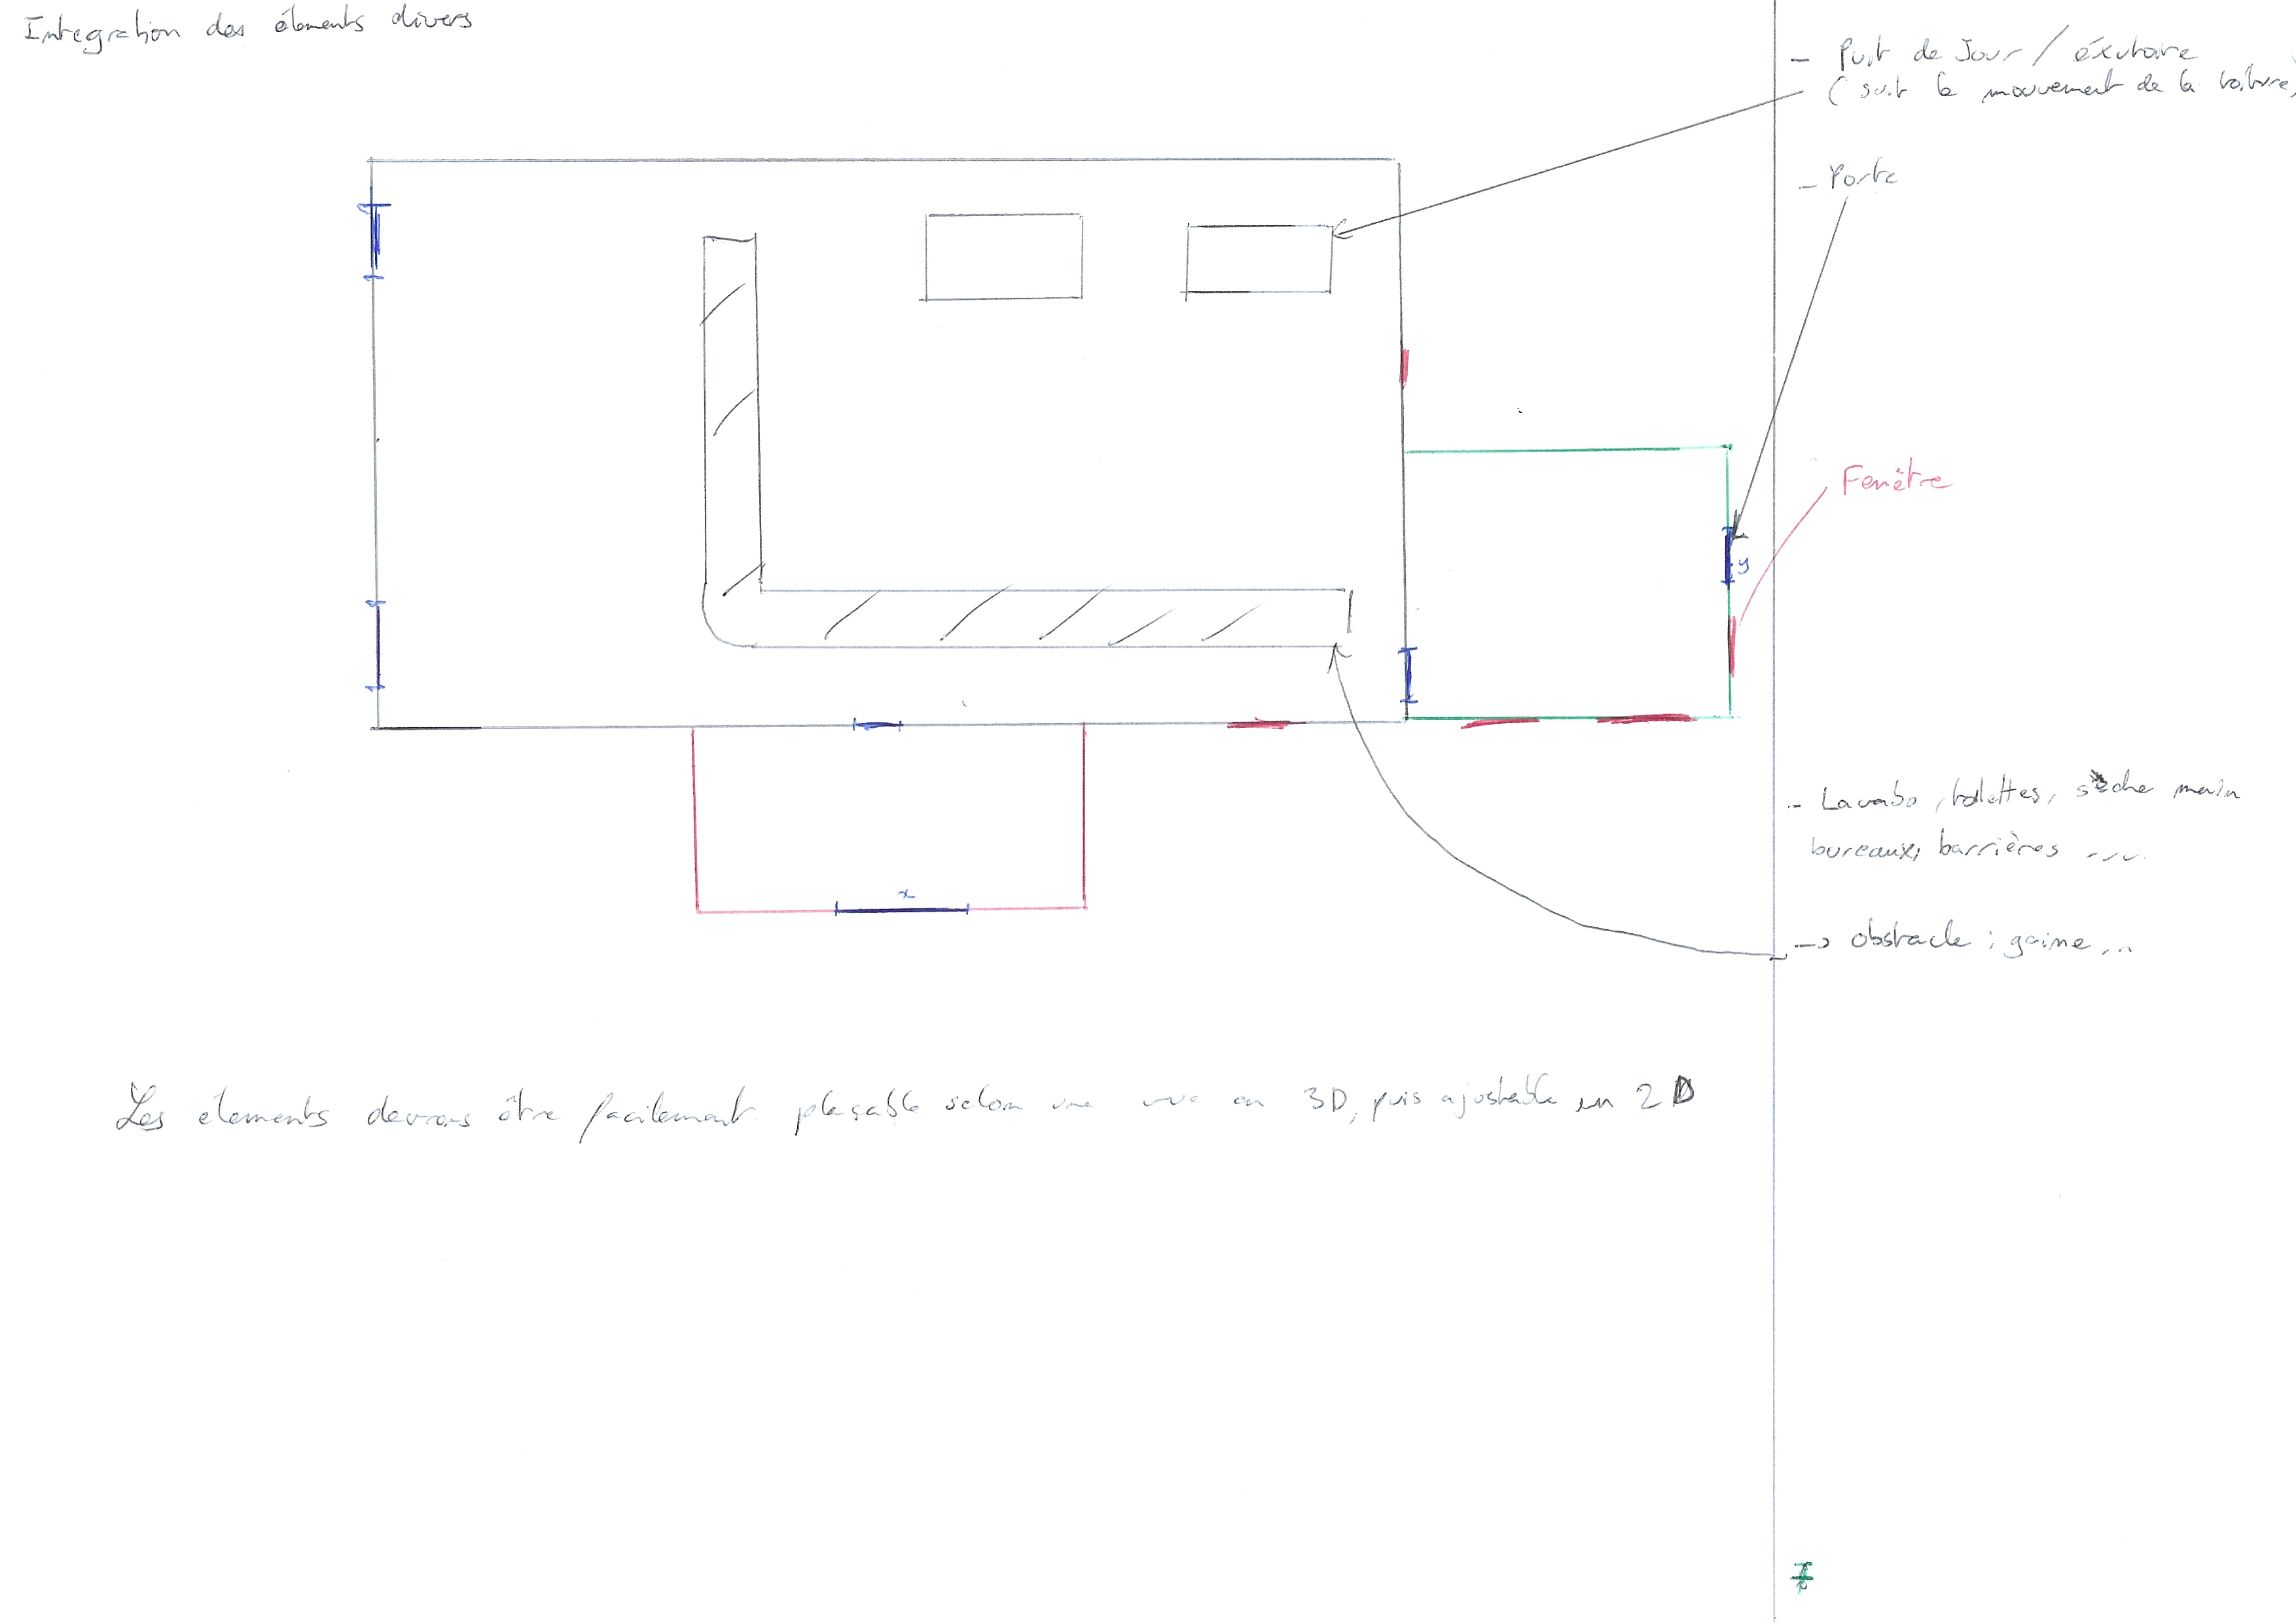 Integration des éléments divers
- Puit de Jour / éxutoire
(suit le mouvement de la toiture)
- Porte
Fenêtre
y
- Lavabo, toilettes, sèche main
bureaux, barrières ....
x
-> obstacle : gaine ...
Les élements devrons être facilement plaçable selon une vue en 3D, puis ajustable en 2D
7